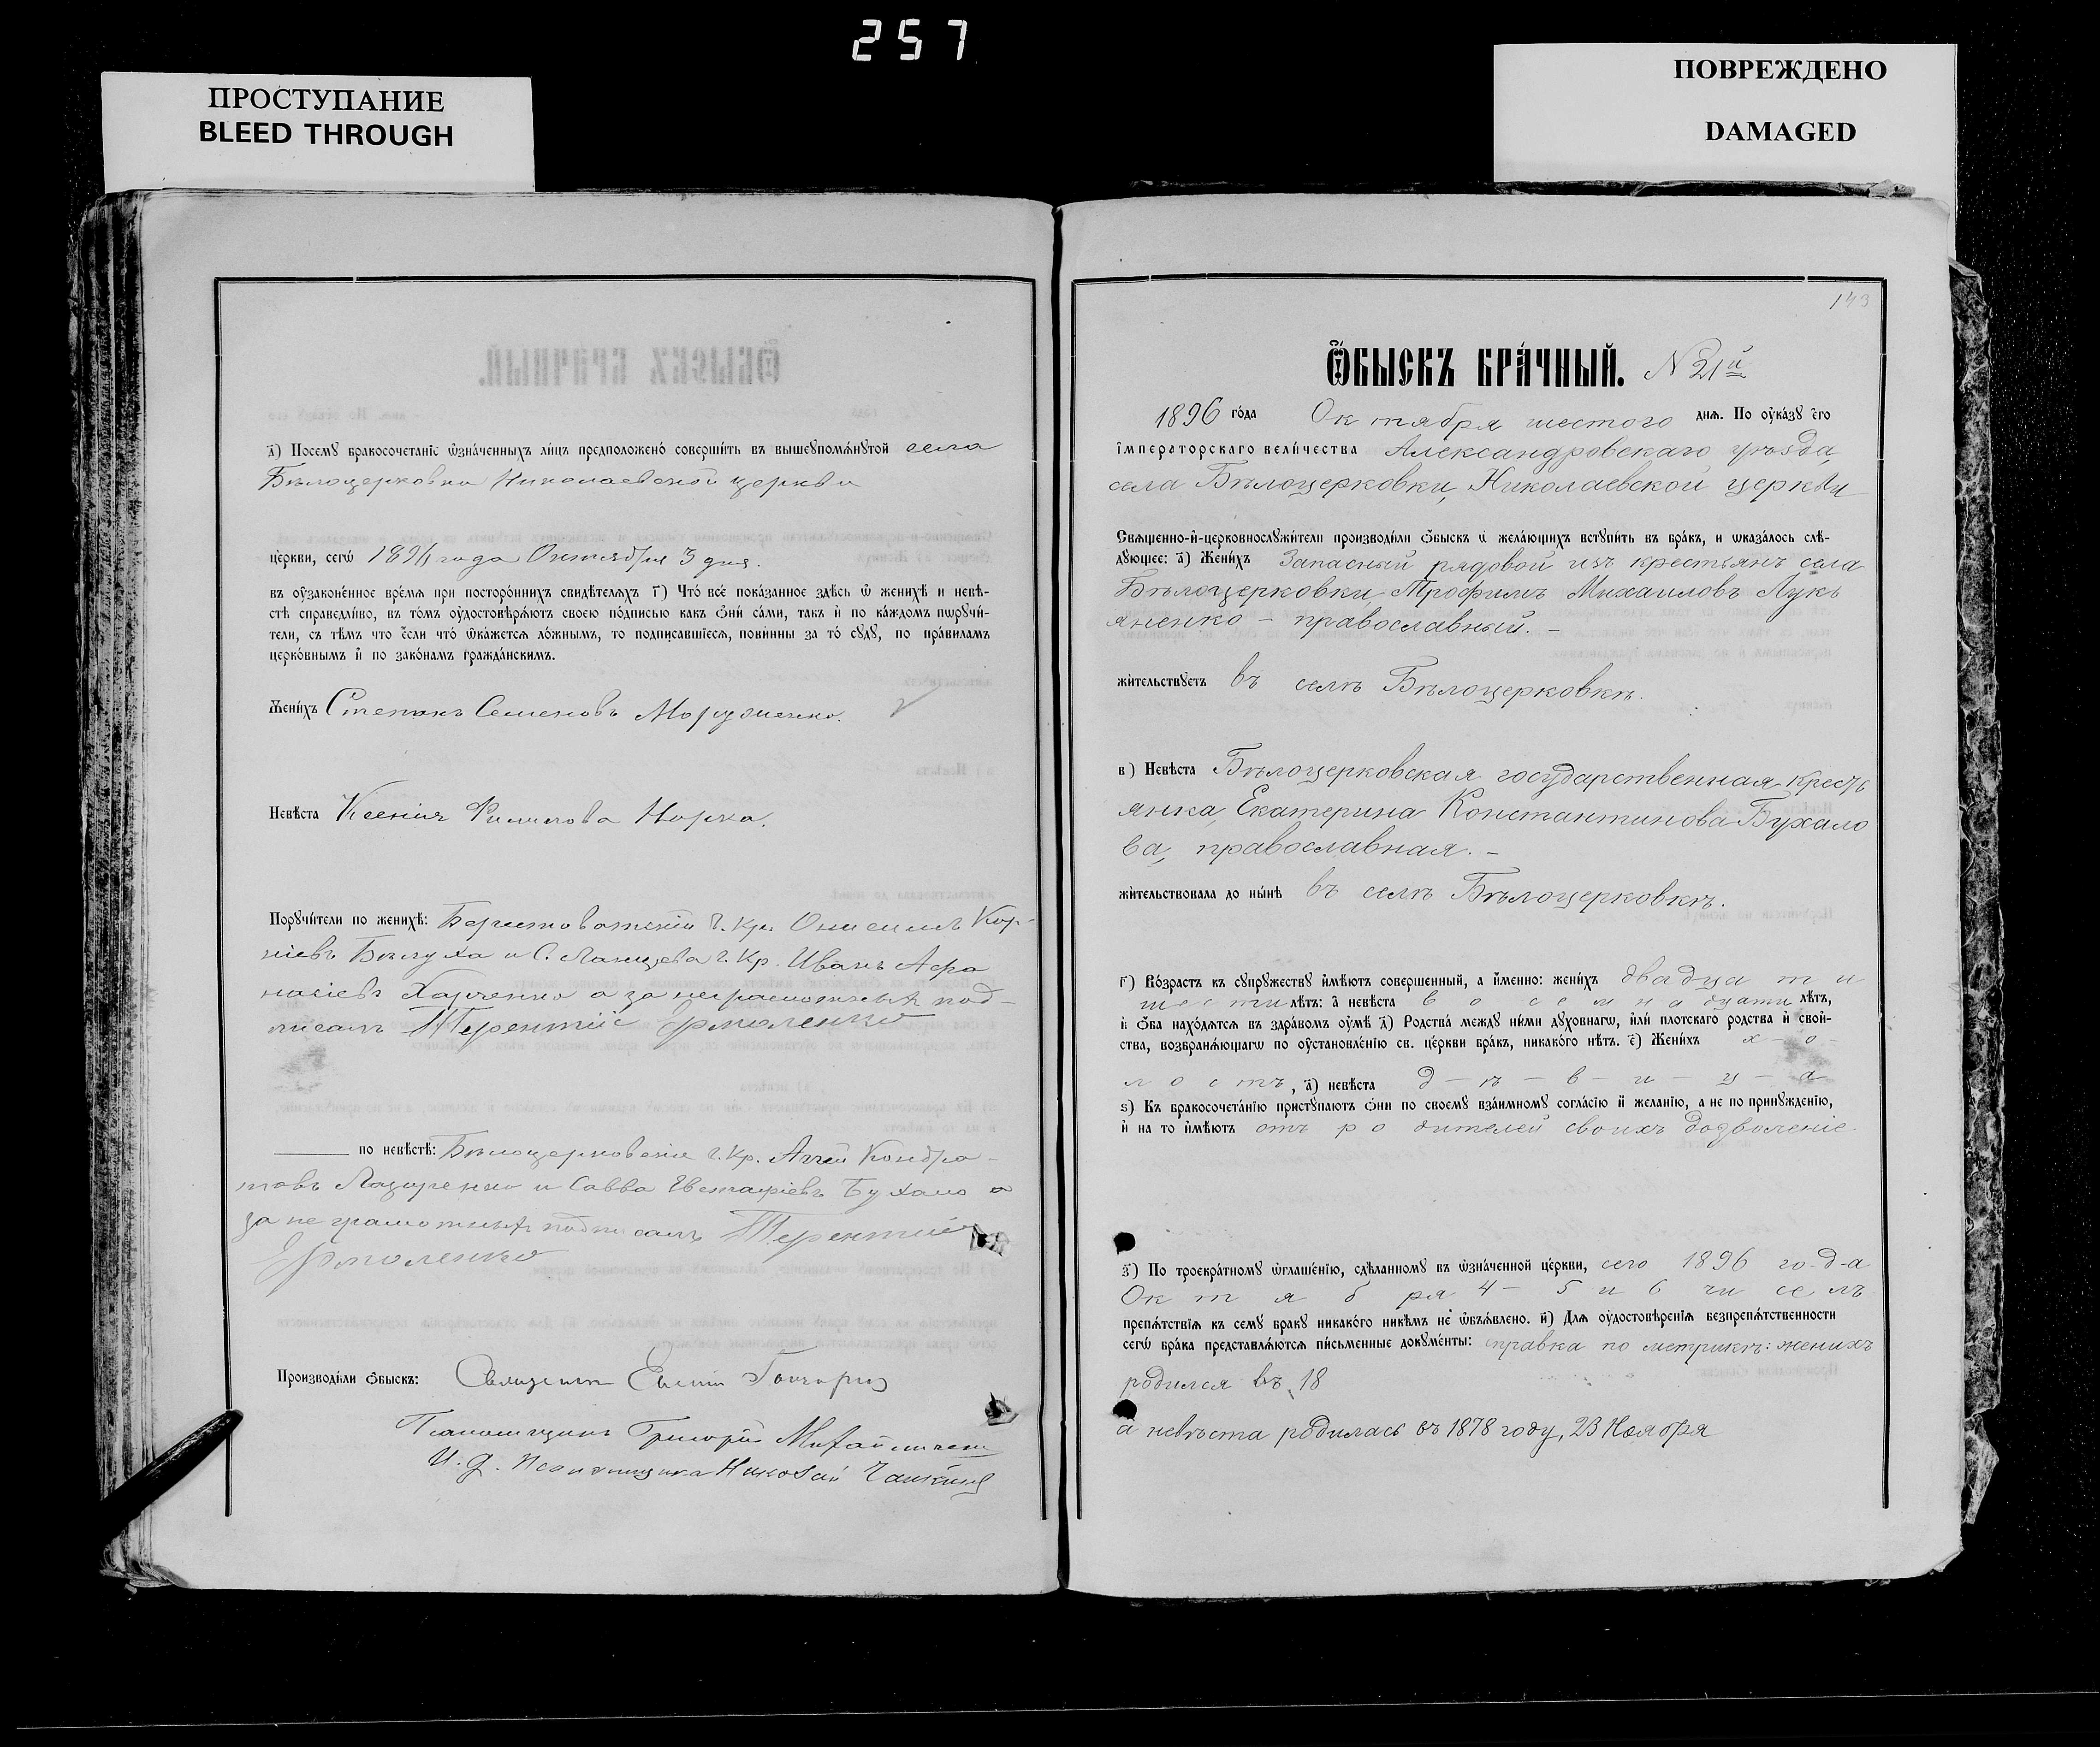 257
ПРОСТУПАНИЕ
BLEED THROUGH
ПОВРЕЖДЕНО
DAMAGED
а҃) Посему бракосочетаніе ѿзначенныхъ лицъ предположено совершить въ вышеупомянутой села
Бѣлоцерковки Николаевской церкви
церкви, сегѡ 1896 года Октября 3 дня.
въ узаконенное время при постороннихъ свидѣтеляхъ г҃) Что все показанное здѣсь ѿ женихѣ и невѣ-
стѣ справедливо, въ томъ удостовѣряютъ своею подписью какъ ѻни сами, такъ и по каждомъ пѡручи-
тели, съ тѣмъ что если что ѿкажется ложнымъ, то подписавшіеся, повинны за то суду, по правиламъ
церковнымъ и по законамъ гражданскимъ.
Женихъ Степанъ Семеновъ
Невѣста Ксенія Филипова Норка.
Поручители по женихѣ: г. кр. Онисимъ Кор-
ніевъ Бѣлуха и С. г. кр. Иванъ Афа
насіевъ Харченко а за неграмотныхъ под-
писалъ Терентій Ермоленко
по невѣстѣ: Бѣлоцерковскіе г. кр. Аггей Кондра-
товъ Лазоренко и Савва Евстафіевъ Бухало а
за неграмотныхъ подписалъ Терентій
Ермоленко
Производили ѻбыскъ: Священникъ
Псаломщикъ Григорій
И. д. псаломщика Николай
143
Ѻбыскъ брачный. N 21й
1896 года Октября шестого дня. По указу его
императорскаго величества Александровскаго уѣзда,
села Бѣлоцерковки, Николаевской церкви
Священно-и-церковнослужители производили ѻбыскъ ѡ желающихъ вступить въ бракъ, и ѡказалось слѣ-
дующее: а҃) Женихъ Запасный рядовой изъ крестьянъ села
Бѣлоцерковки, Трофимъ Михаиловъ Лукь
яненко - православный. -
жительствуетъ въ селѣ Бѣлоцерковкѣ.
в) Невѣста Бѣлоцерковская государственная кресть
янка, Екатерина Константинова Бухало
ва, православная. -
жительствовала до нынѣ въ селѣ Бѣлоцерковкѣ.
г҃) Возрастъ къ супружеству имѣютъ совершенный, а именно: женихъ двадцати
шести лѣтъ: а невѣста восемнадцати лѣтъ,
и ѻба находятся въ здравомъ умѣ д҃) Родства между ними духовнагѡ, или плотскаго родства и свой-
ства, возбраняющагѡ по установленію св. церкви бракъ, никакого нѣтъ. е҃) Женихъ х - о -
лостъ, а҃) невѣста д - ѣ - в - и - ц - а
ѕ) Къ бракосочетанію приступаютъ ѻни по своему взаимному согласію и желанію, а не по принужденію,
и на то имѣютъ отъ родителей своихъ дозволеніе.
з҃) По троекратному ѡглашенію, сдѣланному въ ѡзначенной церкви, сего 1896 го-д-а
Октября 4 - 5 и 6 чиселъ
препятствія къ сему браку никакого никѣмъ не ѡбъявлено. и҃) Для удостовѣренія безпрепятственности
сегѡ брака представляются письменные документы: справка по метрикѣ: женихъ
родился въ 18
а невѣста родилась въ 1878 году, 23 Ноября